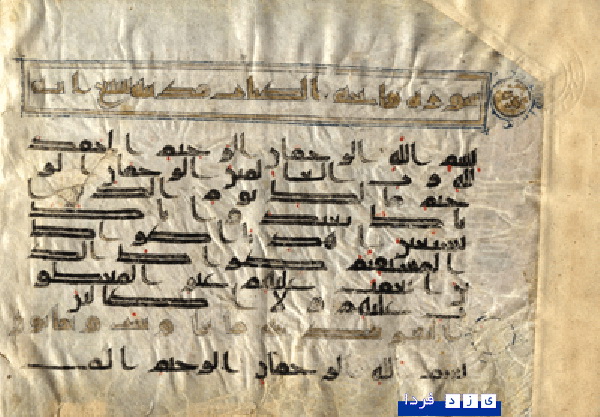 سورة فاتحة الكتاب سبع ايات
بسم الله الرحمن الرحيم الحمد
لله رب العالمين الرحمن الر
حيم ملك يوم الدين ا
ياك نعبد و اياك نـ
ستعين اهدنا الصراط
المستقيم صراط الذ
ين انعمت عليهم غير المغضو
ب عليهم ولا الضالين
بسم الله الرحمن الرحيم الم
یزد فردا